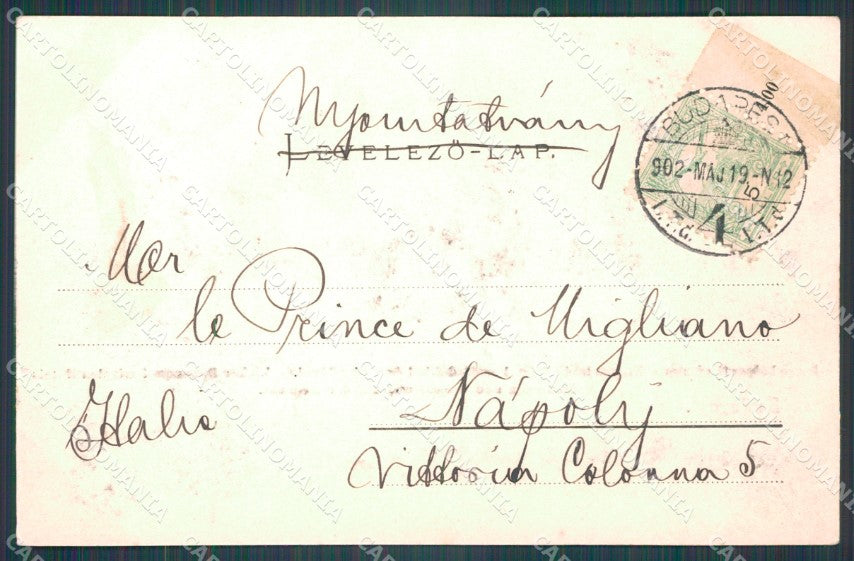 Nyomtatvány
LEVELEZŐ-LAP.
BUDAPEST
902-MÁJ 19.-N12
I.T.d. 4 I.T.d.
400
Mor
le Prince de Migliano
Italie
Nápoly
Vittoria Colonna 5
CARTOLINOMANIA